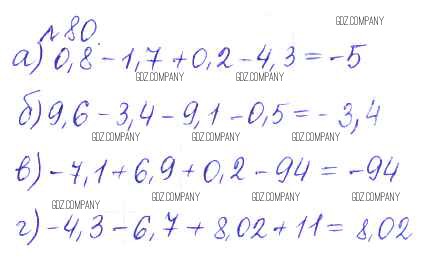 №80.
GDZ.COMPANY
а) 0,8 - 1,7 + 0,2 - 4,3 = -5
GDZ.COMPANY GDZ.COMPANY
б) 9,6 - 3,4 - 9,1 - 0,5 = -3,4
GDZ.COMPANY GDZ.COMPANY GDZ.COMPANY
в) -7,1 + 6,9 + 0,2 - 94 = -94
GDZ.COMPANY GDZ.COMPANY GDZ.COMPANY
GDZ.COMPANY
г) -4,3 - 6,7 + 8,02 + 11 = 8,02
GDZ.COMPANY GDZ.COMPANY